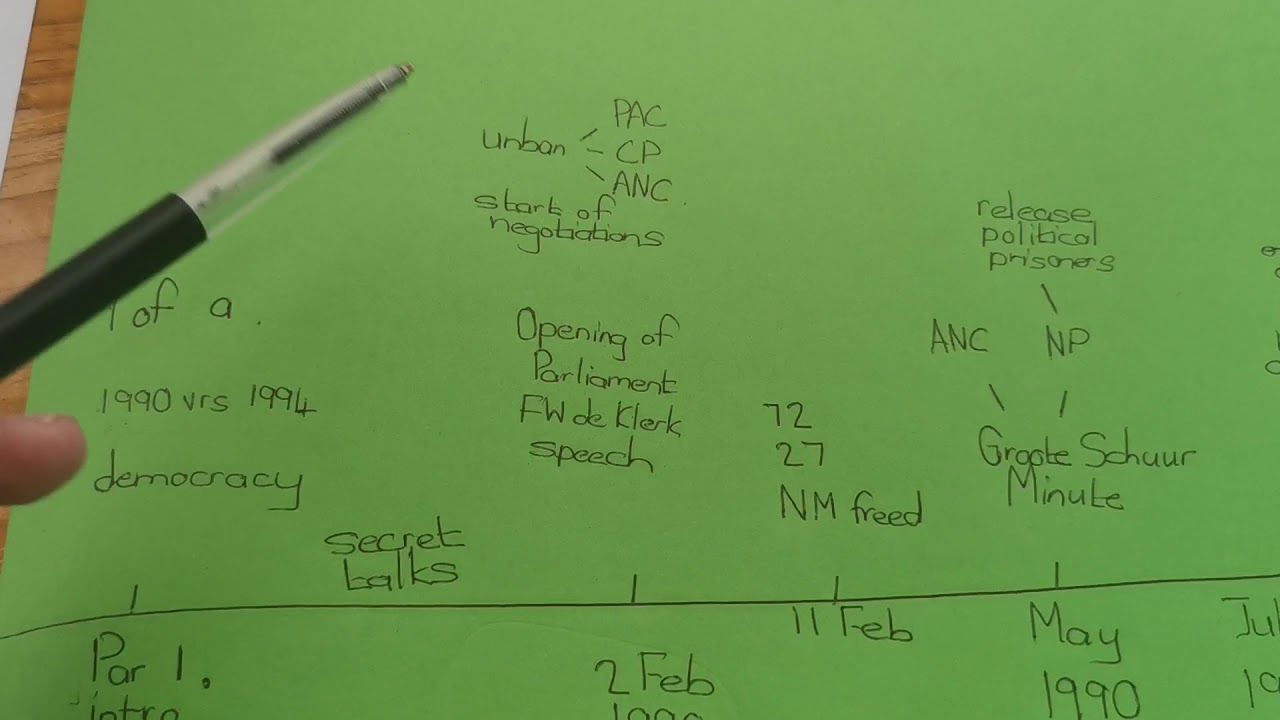 PAC
unban - CP
ANC.
start of
negotiations
release
political
prisoners
of a.
Opening of
Parliament
FW de Klerk
speech
ANC NP
1990 vrs 1994
72
27
democracy
Groote Schuur
Minute
NM freed
secret
talks
11 Feb
May
1990
Par 1.
intro
2 Feb